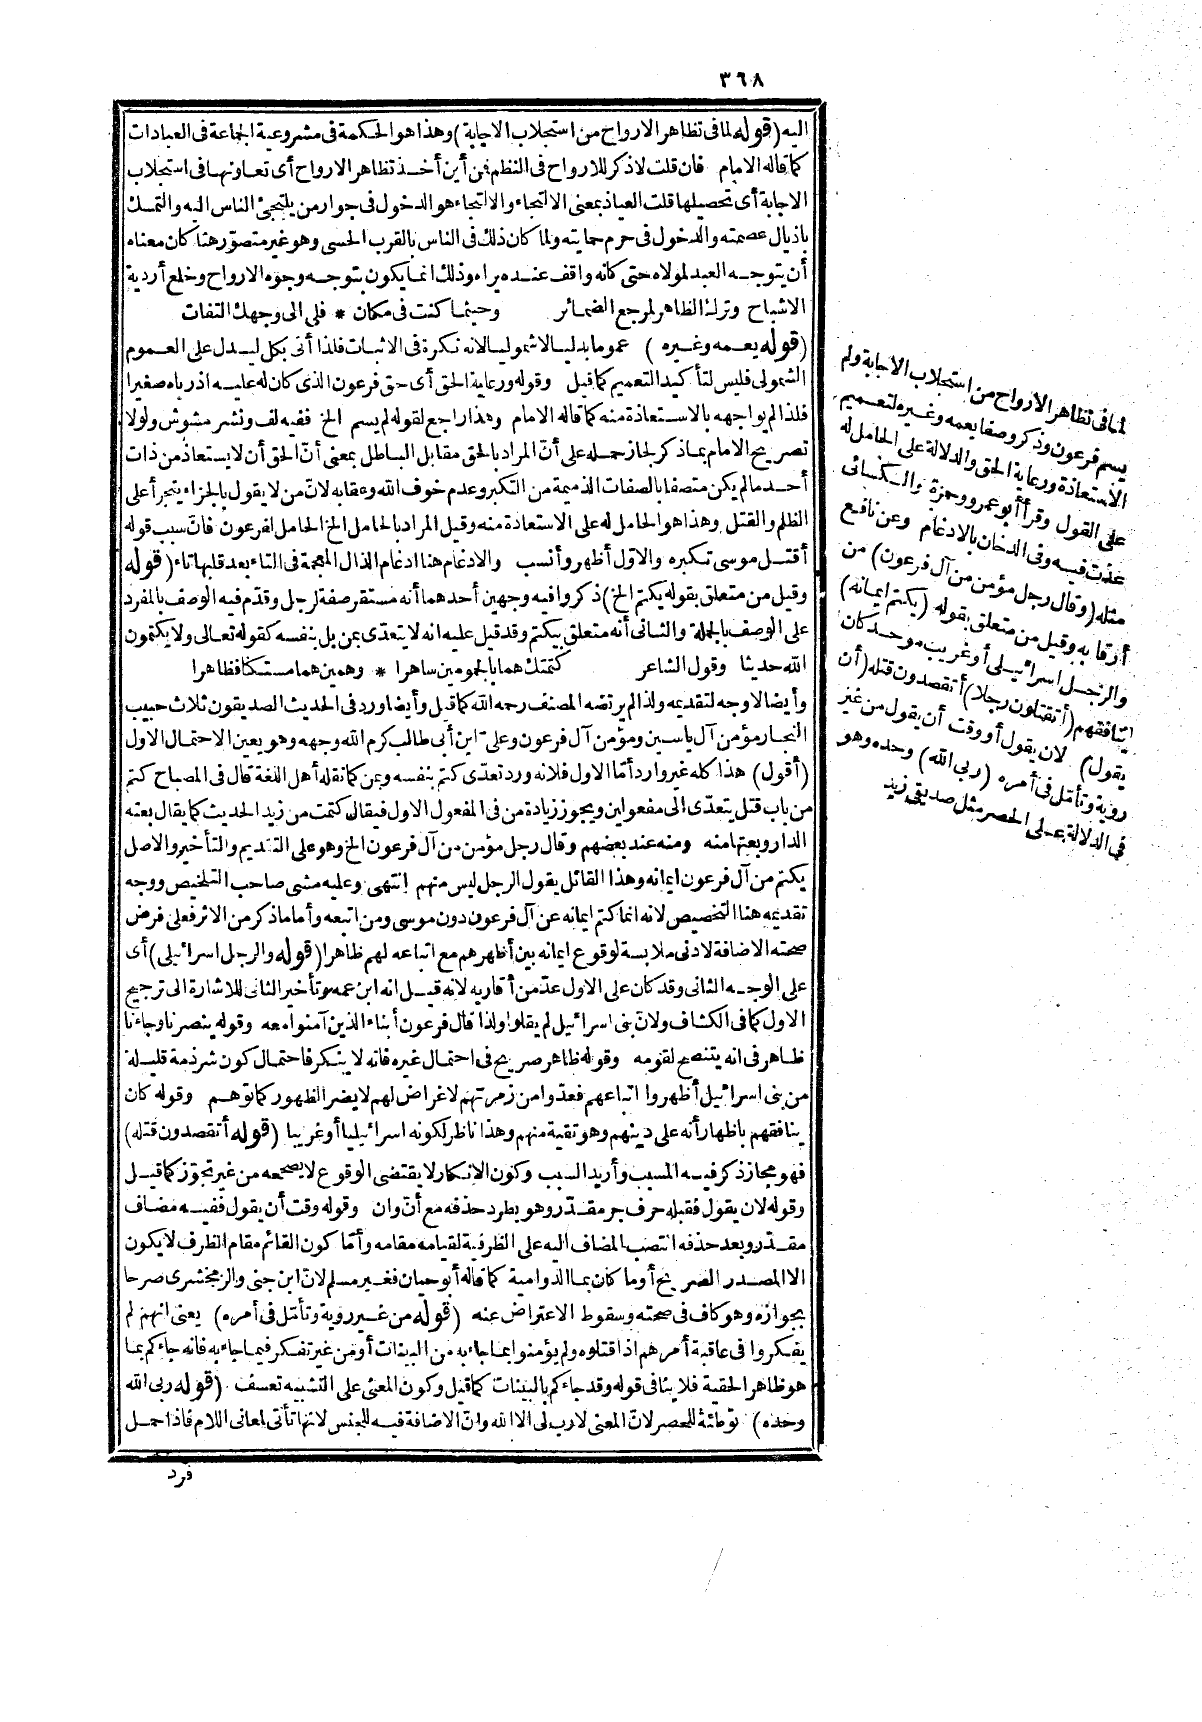 ٣٦٨
اليه (قوله لما في تظاهر الارواح من استجلاب الاجابة) وهذا هو الحكمة في مشروعية الجماعة في العبادات
كما قاله الامام فان قلت لا ذكر للارواح في النظم فمن أين أخذ تظاهر الارواح أى تعاونها في استجلاب
الاجابة أى تحصيلها قلت العياذ بمعنى الالتجاء والالتجاء هو الدخول في جوار من يلتجئ الناس اليه والتمسك
باذيال عصمته والدخول في حرم حمايته ولما كان ذلك في الناس بالقرب الحسى وهو غير متصوّر هنا كان معناه
أن يتوجه العبد لمولاه حتى كانه واقف عنده يراه وذلك انما يكون بتوجه وجوه الارواح وخلع أردية
الاشباح وترك الظاهر لمرجع الضمائر وحيثما كنت في مكان * فلى الى وجهك التفات
(قوله يعمه وغيره) عموما بدليا لا شموليا لانه نكرة في الاثبات فلذا أتى بكل ليدل على العموم
الشمولى فليس لتأكيد التعميم كما قيل وقوله ورعاية الحق أى حق فرعون الذى كان له عليه اذ رباه صغيرا
فلذا لم يواجهه بالاستعاذة منه كما قاله الامام وهذا راجع لقوله لم يسم الخ ففيه لف ونشر مشوش ولولا
تصريح الامام بما ذكر لجاز حمله على أنّ المراد بالحق مقابل الباطل بمعنى أنّ الحق أن لا يستعاذ من ذات
أحد ما لم يكن متصفا بالصفات الذميمة من التكبر وعدم خوف الله وعقابه لانّ من لا يقول بالجزاء يتجرأ على
الظلم والقتل وهذا هو الحامل له على الاستعاذة منه وقيل المراد بالحامل الخ الحامل لفرعون فانّ سبب قوله
أقتل موسى تكبره والاول أظهر وأنسب والادغام هنا ادغام الذال المعجمة في التاء بعد قلبها تاء (قوله
وقيل من متعلق بقوله يكتم الخ) ذكروا فيه وجهين أحدهما أنه مستقر صفة لرجل وقدّم فيه الوصف بالمفرد
على الوصف بالجملة والثانى أنه متعلق بيكتم وقد قيل عليه انه لا يتعدّى بمن بل بنفسه كقوله تعالى ولا يكتمون
الله حديثا وقول الشاعر كتمتك هما بالجمومين ساهرا * وهمين هما مستكنا وظاهرا
وأيضا لا وجه لتقديمه ولذا لم يرتضه المصنف رحمه الله كما قيل وأيضا ورد في الحديث الصديقون ثلاث حبيب
النجار مؤمن آل ياسين ومؤمن آل فرعون وعلى ابن أبى طالب كرم الله وجهه وهو يعين الاحتمال الاول
(أقول) هذا كله غير وارد أمّا الاول فلانه ورد تعدّى كتم بنفسه وبمن كما نقله أهل اللغة قال في المصباح كتم
من باب قتل يتعدّى الى مفعولين ويجوز زيادة من في المفعول الاول فيقال كتمت من زيد الحديث كما يقال بعته
الدار وبعتها منه ومنه عند بعضهم وقال رجل مؤمن من آل فرعون الخ وهو على التقديم والتأخير والاصل
يكتم من آل فرعون ايمانه وهذا القائل يقول الرجل ليس منهم انتهى وعليه مشى صاحب التلخيص ووجه
تقديمه هنا التخصيص لانه انما كتم ايمانه عن آل فرعون دون موسى ومن اتبعه وأما ما ذكر من الاثر فعلى فرض
صحته الاضافة لادنى ملابسة لوقوع ايمانه بين أظهرهم مع اتباعه لهم ظاهرا (قوله والرجل اسرائيلى) أى
على الوجه الثانى وقد كان على الاول عدّ من أقاربه لانه قيل انه ابن عمه وتأخير الثانى للاشارة الى ترجيح
الاول كما في الكشاف ولانّ بنى اسرائيل لم يقلوا ولذا قال فرعون أبناء الذين آمنوا معه وقوله ينصرنا وجاءنا
ظاهر في انه يتنصح لقومه وقوله ظاهر صريح في احتمال غيره فانه لا ينكر فاحتمال كون شرذمة قليلة
من بنى اسرائيل أظهروا اتباعهم فعدّوا من زمرتهم لاغراض لهم لا يضر الظهور كما توهم وقوله كان
ينافقهم باظهار أنه على دينهم وهو تقية منهم وهذا ناظر لكونه اسرائيليا أو غريبا (قوله أتقصدون قتله)
فهو مجاز ذكر فيه المسبب وأريد السبب وكون الانكار لا يقتضى الوقوع لا يصححه من غير تجوّز كما قيل
وقوله لان يقول فقبله حرف جر مقدّر وهو يطرد حذفه مع أنّ وان وقوله وقت أن يقول ففيه مضاف
مقدّر وبعد حذفه انتصب المضاف اليه على الظرفية لقيامه مقامه وأمّا كون القائم مقام الظرف لا يكون
الا المصدر الصريح أو ما كان بما الدوامية كما قاله أبو حيان فغير مسلم لانّ ابن جنى والزمخشرى صرحا
بجوازه وهو كاف في صحته وسقوط الاعتراض عنه (قوله من غير روية وتأمّل في أمره) يعنى انهم لم
يفكروا في عاقبة أمرهم اذا قتلوه ولم يؤمنوا بما جاء به من البينات أو من غير تفكر فيما جاء به فانه جاءكم بما
هو ظاهر الحقية فلا ينافى قوله وقد جاءكم بالبينات كما قيل وكون المعنى على التشبيه تعسف (قوله ربى الله
وحده) توطئة للحصر لانّ المعنى لا رب لى الا الله وانّ الاضافة فيه للجنس لانها تأتى لمعانى اللام فاذا حمل
فرد
لما في تظاهر الارواح من استجلاب الاجابة ولم
يسم فرعون وذكر وصفا يعمه وغيره لتعميم
الاستعاذة ورعاية الحق والدلالة على الحامل له
على القول وقرأ أبو عمرو وحمزة والكسائى
عذت فيه وفى الدخان بالادغام وعن نافع
مثله (وقال رجل مؤمن من آل فرعون) من
أقاربه وقيل من متعلق بقوله (يكتم ايمانه)
والرجل اسرائيلى أو غريب موحد كان
ينافقهم (أتقتلون رجلا) أتقصدون قتله (أن
يقول) لان يقول أو وقت أن يقول من غير
روية وتأمّل في أمره (ربى الله) وحده وهو
في الدلالة على الحصر مثل صديقى زيد